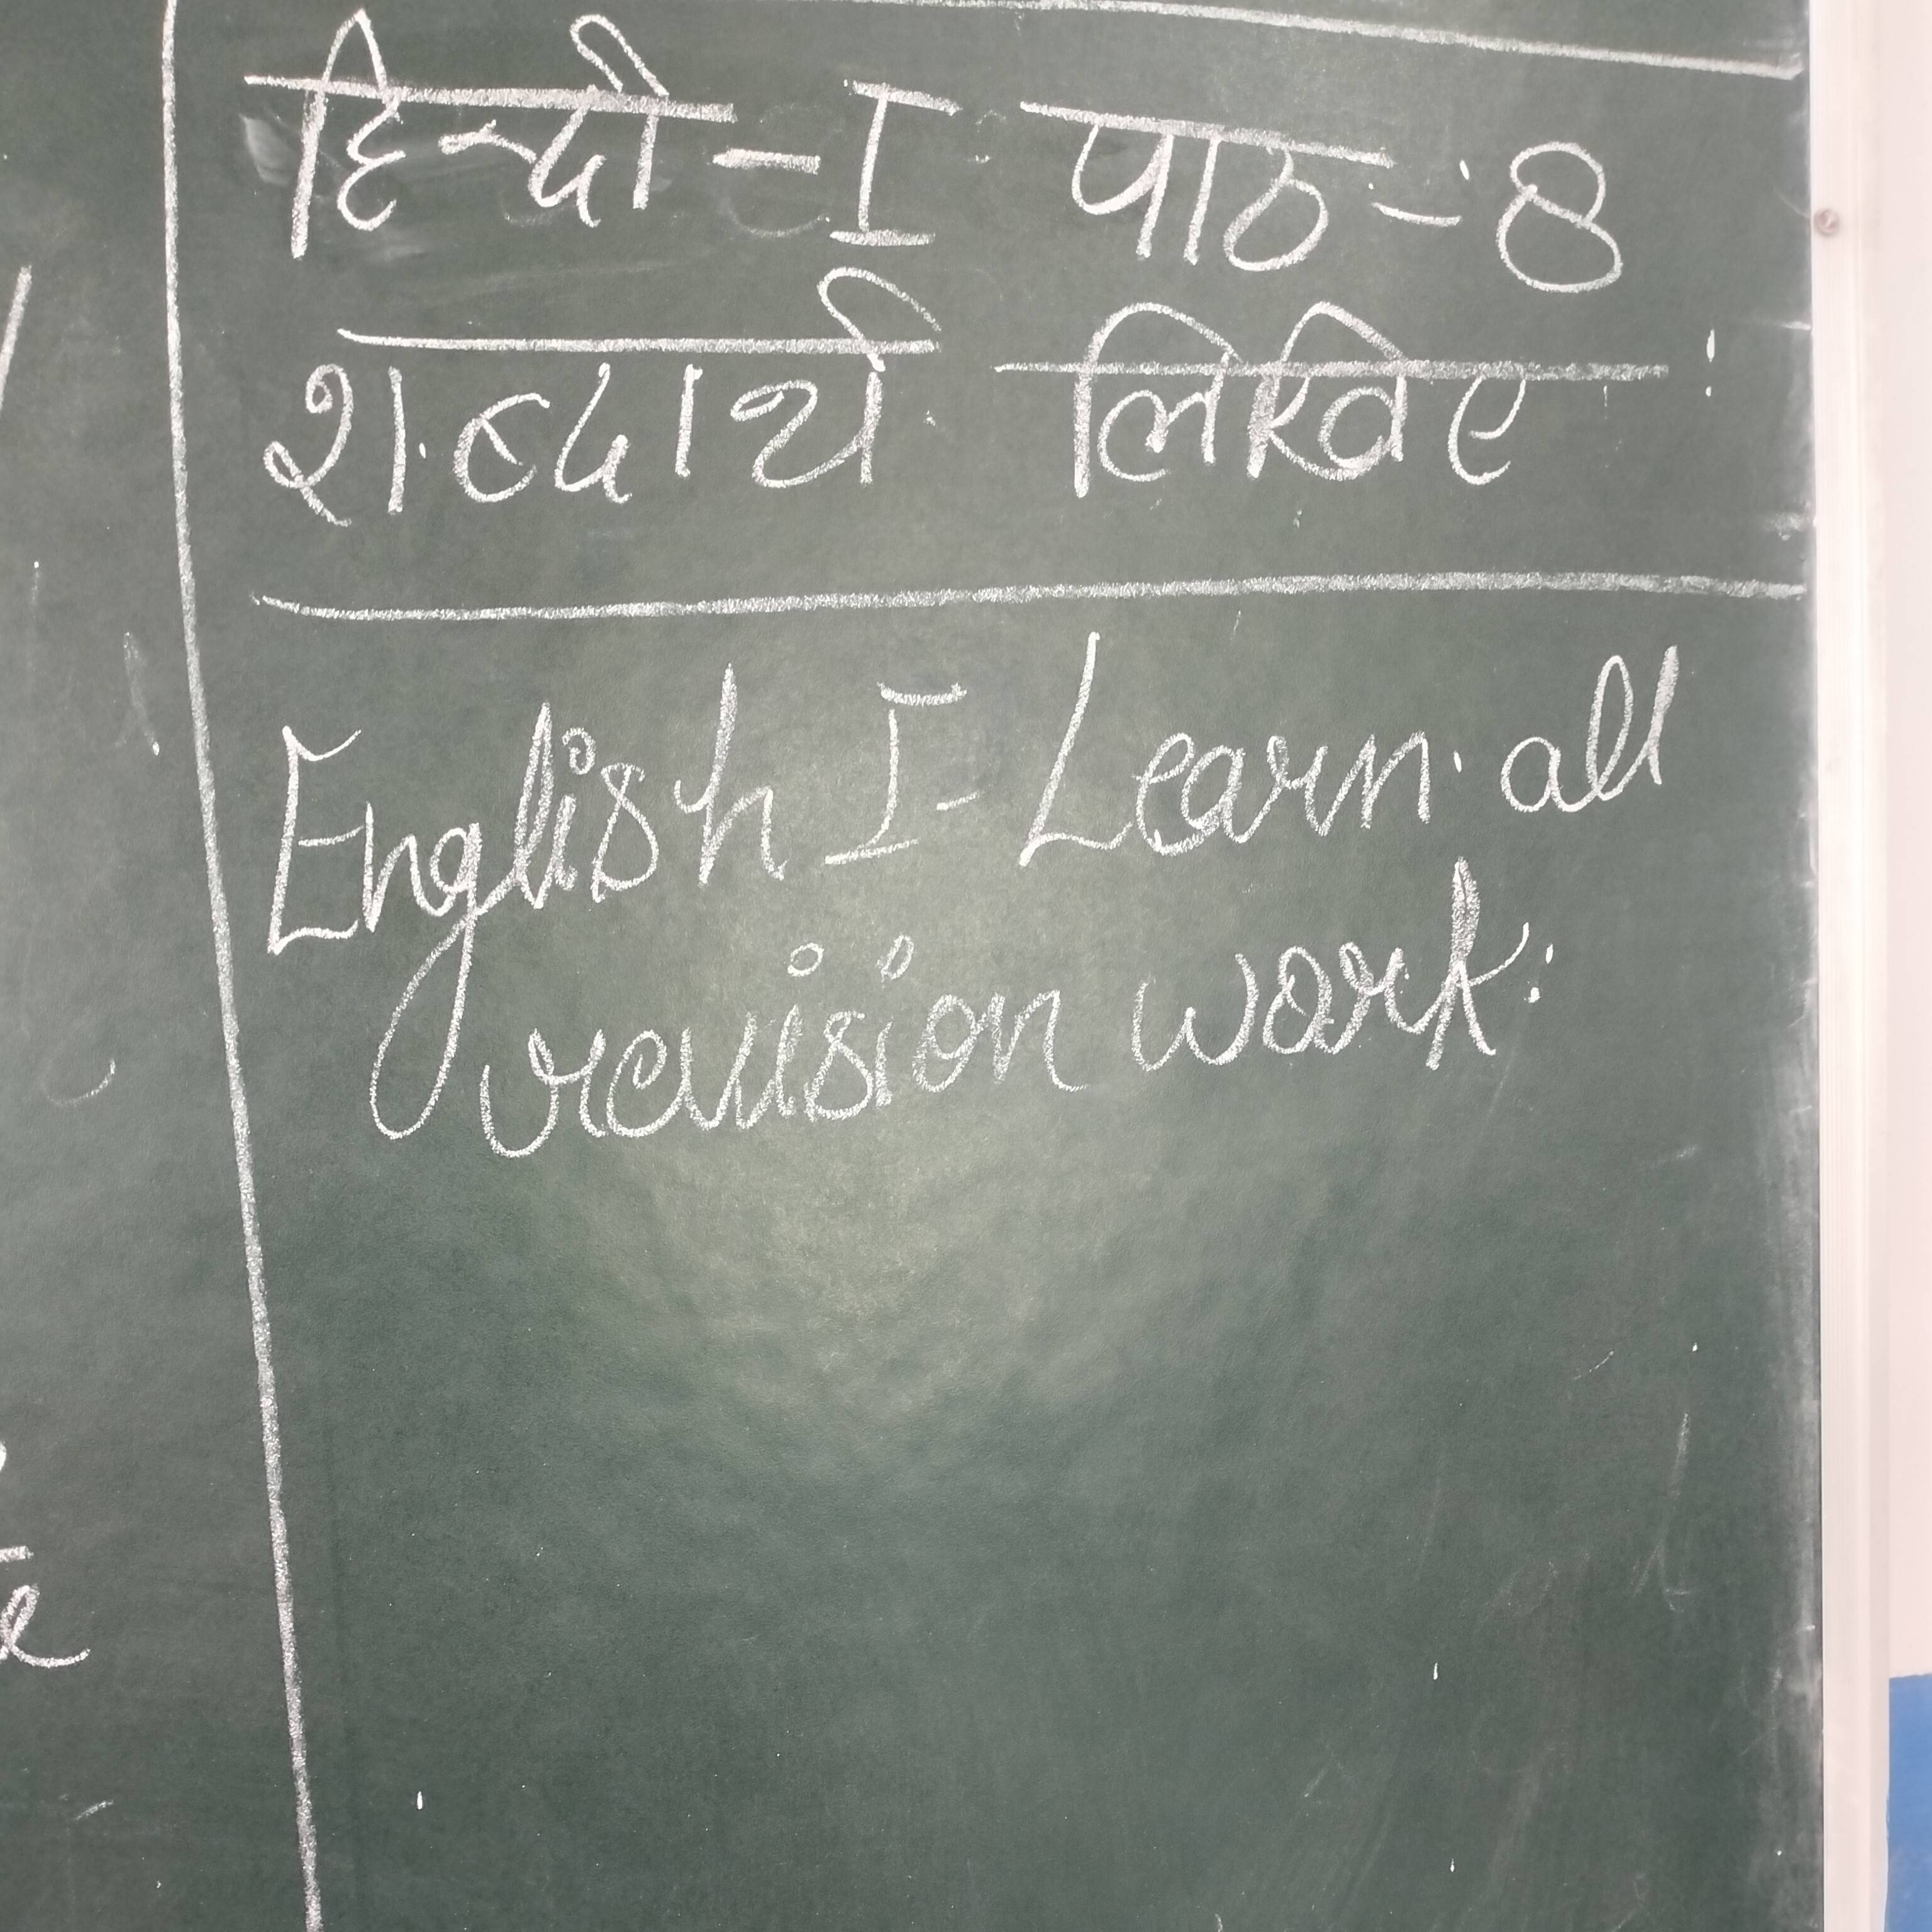 हिन्दी - I पाठ - 8
शब्दार्थ लिखिए
English I - Learn all
revision work.